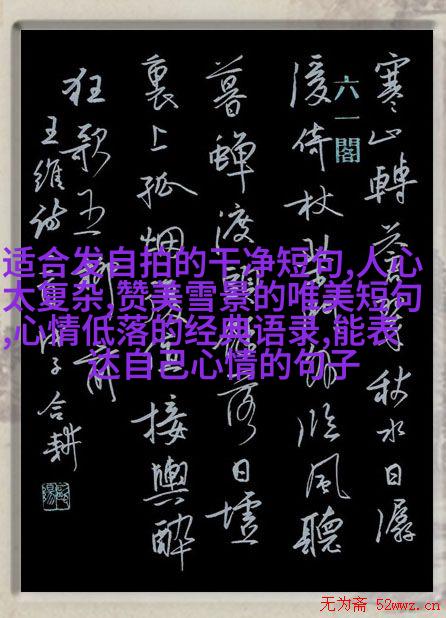 适合发自拍的干净短句,人心
太复杂,赞美雪景的唯美短句
,心情低落的经典语录,能表
达自己心情的句子
六一閣
寒山轉蒼翠秋水日潺
湲倚杖柴門外临風聽
暮蝉渡頭餘落日墟
裏上孤烟復值接輿醉
狂歌五柳前
王維诗 子合耕
无为斋 52wwz.cn